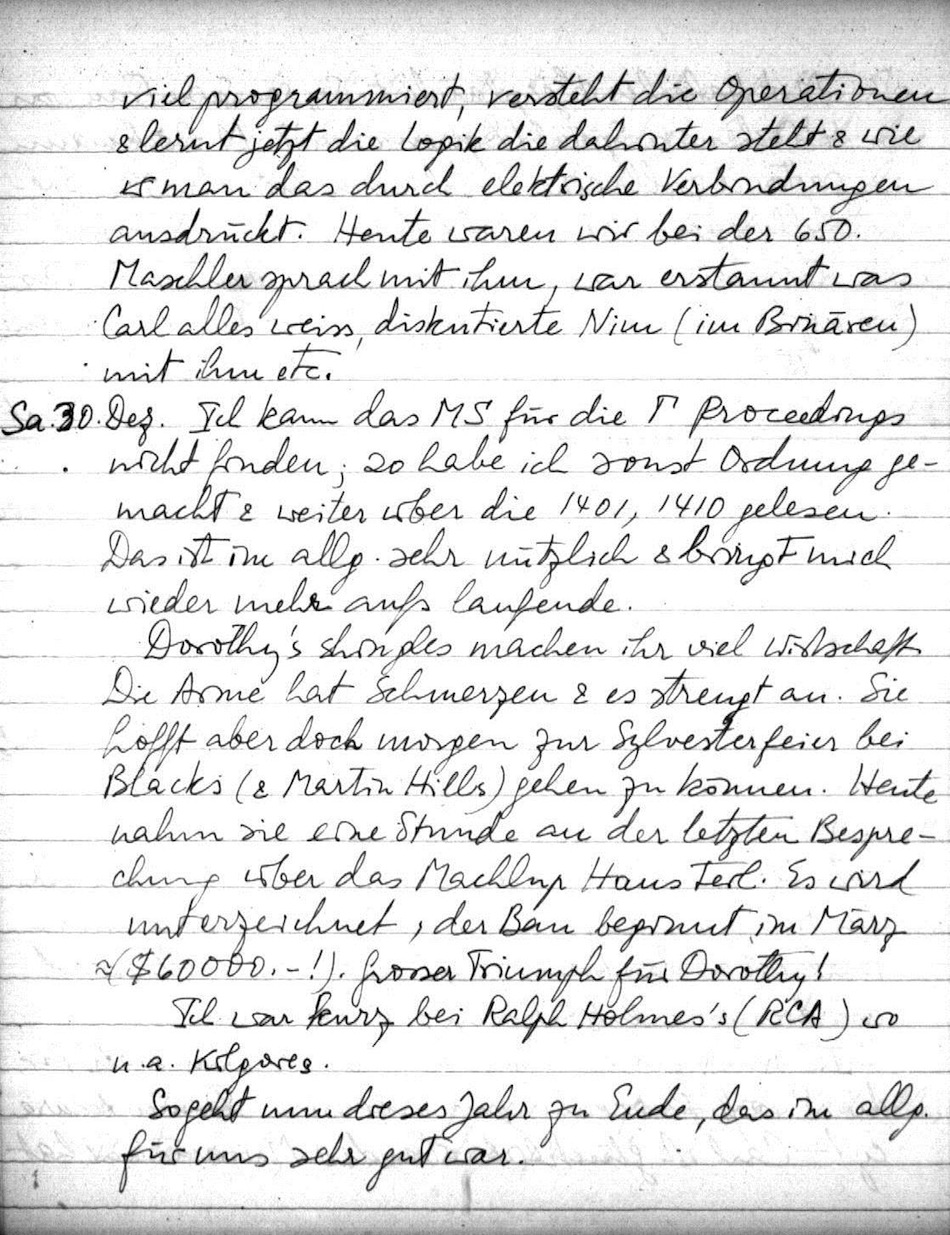 viel programmiert, versteht die Operationen
& lernt jetzt die Logik die dahinter steht & wie
man das durch elektrische Verbindungen
ausdrückt. Heute waren wir bei der 650.
Maschler sprach mit ihm, war erstaunt was
Carl alles weiss, diskutierte Nim (im Binären)
mit ihm etc.
Sa. 30. Dez. Ich kann das MS für die Γ Proceedings
nicht finden; so habe ich sonst Ordnung ge-
macht & weiter über die 1401, 1410 gelesen.
Das ist im allg. sehr nützlich & bringt mich
wieder mehr aufs laufende.
Dorothy's shingles machen ihr viel Wirtschaft
Die Arme hat Schmerzen & es strengt an. Sie
hofft aber doch morgen zur Sylvesterfeier bei
Blacks (& Martin Hills) gehen zu können. Heute
nahm sie eine Stunde an der letzten Bespre-
chung über das Machlup Haus Teil. Es wird
unterzeichnet, der Bau beginnt im März
≈($60000.-!). Grosser Triumph für Dorothy!
Ich war kurz bei Ralph Holmes's (RCA) wo
u.a. Kilgores.
So geht nun dieses Jahr zu Ende, das im allg.
für uns sehr gut war.